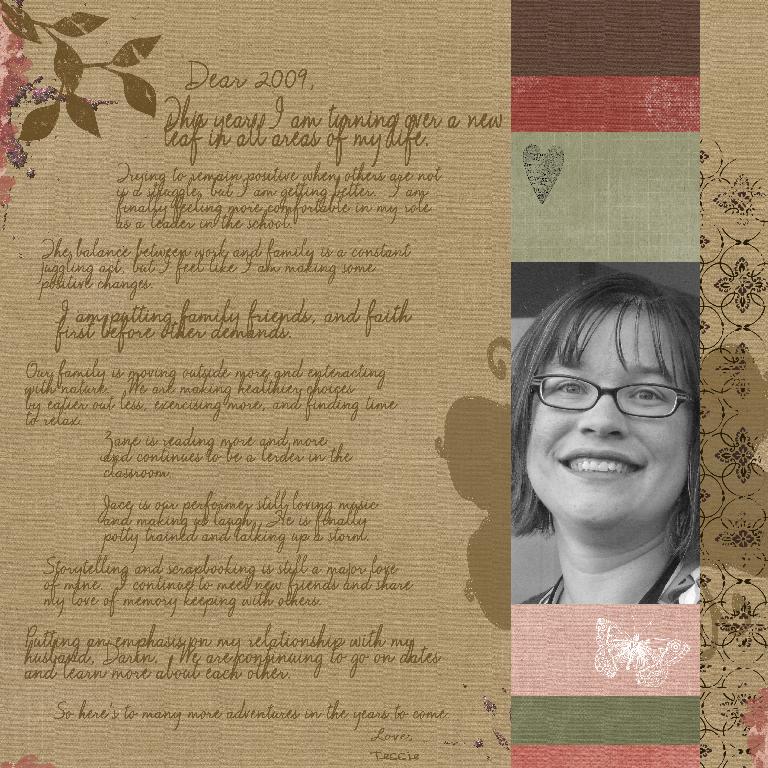 Dear 2009,
This year, I am turning over a new
leaf in all areas of my life.
Trying to remain positive when others are not
is a struggle, but I am getting better. I am
finally feeling more comfortable in my role
as a leader in the school.
The balance between work and family is a constant
juggling act, but I feel like I am making some
positive changes.
I am putting family, friends, and faith
first before other demands.
Our family is moving outside more and enteracting
with nature. We are making healthier choices
by eating out less, exercising more, and finding time
to relax.
Zane is reading more and more
and continues to be a leader in the
classroom.
Jace is our performer still loving music
and making us laugh. He is finally
potty trained and talking up a storm.
Storytelling and scrapbooking is still a major love
of mine. I continue to meet new friends and share
my love of memory keeping with others.
Putting an emphasis on my relationship with my
husband, Darin. We are continuing to go on dates
and learn more about each other.
So here's to many more adventures in the years to come.
Love,